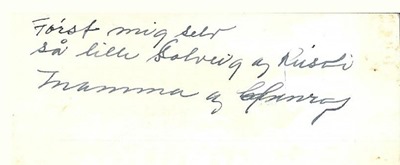 Først mig selv
så lille Solveig og Kirsti
Mamma og